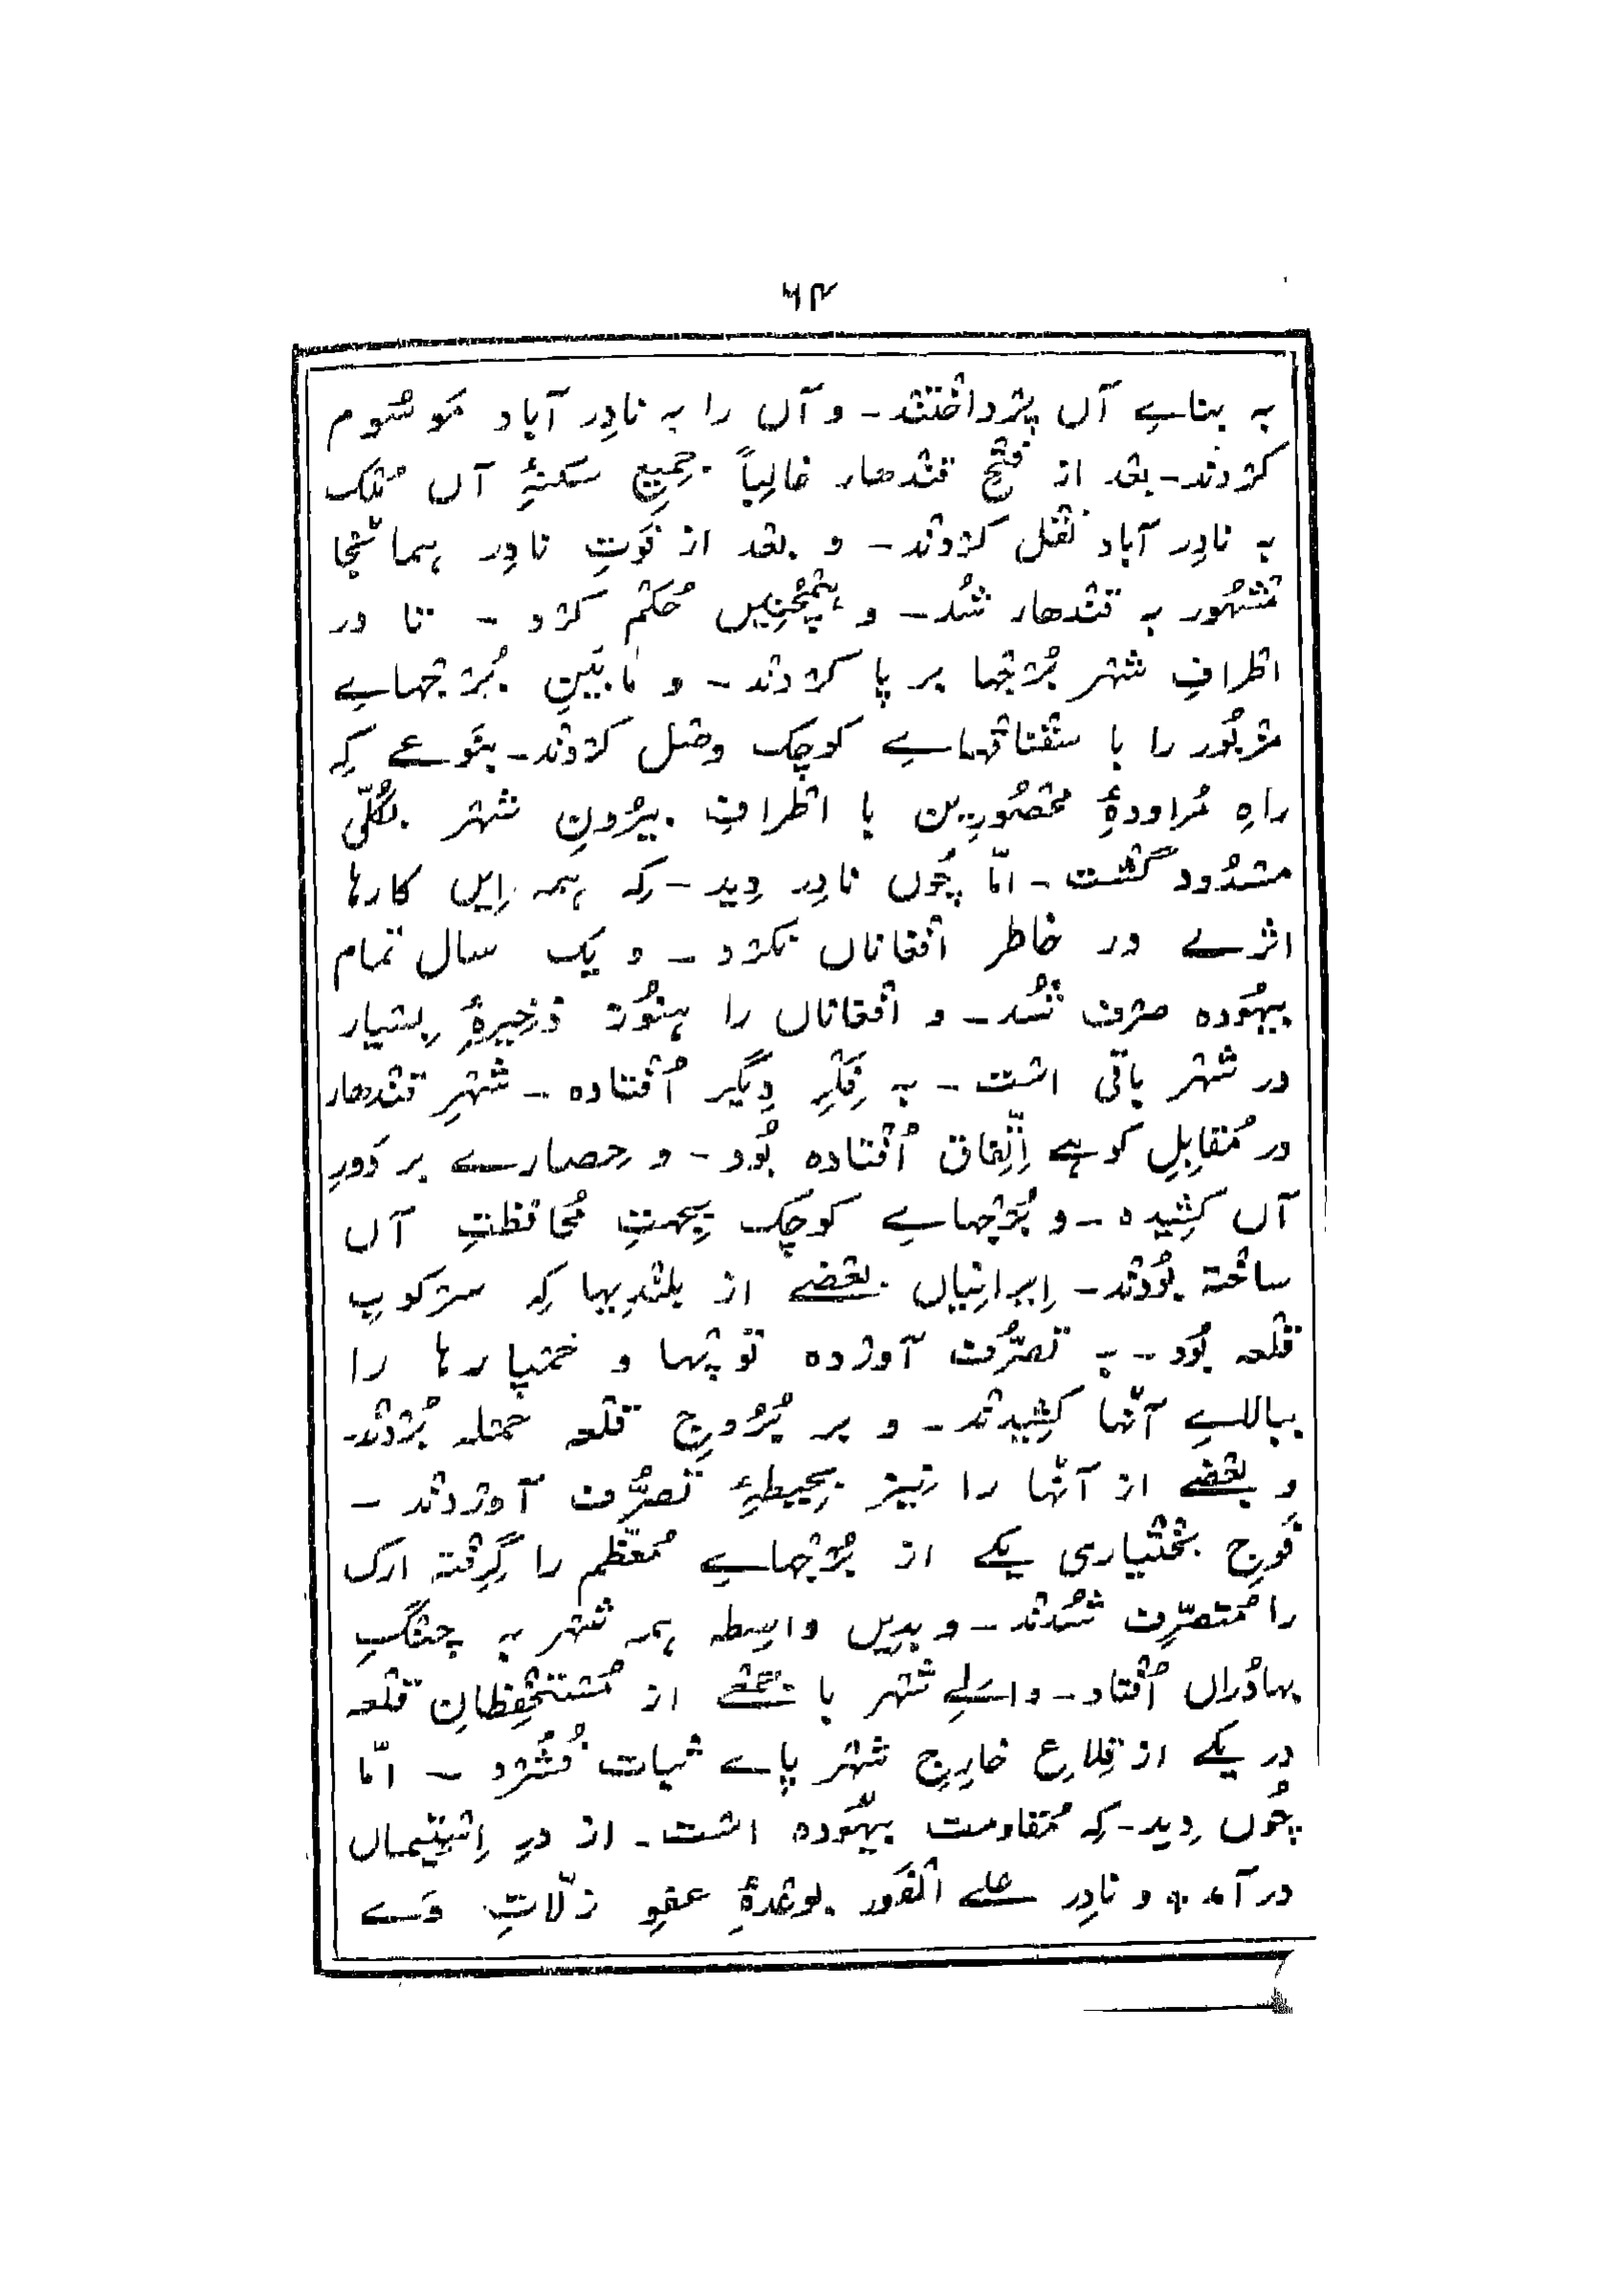 ۶۴
به بناے آں پرداختند - و آں را به نادِر آباد مَوسُوم
کردند - بعد از فتحِ قندهار غالِباً جمیعِ سکنۂِ آں مُلک
به نادِر آباد نقل کردند - و بعد از فَوتِ نادِر ہمانجا
مشہُور به قندهار شُد - و ہمچُنِیں حُکم کرد - تا در
اطرافِ شہر بُرجہا بر پا کردند - و مابَینِ بُرجہاے
مزبُور را با سقناقہاے کوچک وصل کردند - بنَوعے کِه
راہِ مُراودۂِ محصُورِین با اطرافِ بیرُونِ شہر بکُلّی
مسدُود گشت - امّا چُوں نادِر دِید - کِه ہمه اِیں کارہا
اثرے در خاطر افغاناں نکرد - و یک سال تمام
بیہُودہ صرف شُد - و افغاناں را ہنُوز ذخِیرۂِ بِسیار
در شہر باقی است - به فِکرِ دِیگر اُفتادہ - شہرِ قندهار
در مُقابِلِ کوہے اِتِّفاق اُفتادہ بُود - و حِصارے بر دَورِ
آں کشِیدہ - و بُرجہاے کوچک بجِہتِ مُحافظتِ آں
ساختہ بُودند - اِیرانِیاں بعضے از بلندِیہا کِه سرکوبِ
قلعه بُود - به تصرُّف آوردہ توپہا و خمپارہا را
ببالاےِ آنہا کشِیدند - و بر بُرُوجِ قلعه حمله بُردند -
و بعضے از آنہا را نِیز بحِیطۂِ تصرُّف آوردند -
فَوجِ بختیاری یکے از بُرجہاے مُعظّم را گِرِفته ارک
را مُتصرِّف شُدند - و بدِیں واسِطه ہمه شہر به چنگِ
بہادُراں اُفتاد - والےِ شہر با بعضے از مُستحفِظانِ قلعه
در یکے از قِلاعِ خارِجِ شہر پاے ثبات فُشُرد - امّا
چُوں دِید - کِه مُقاومت بیہُودہ است - از درِ اِستِیماں
در آمد و نادِر علے الفَور بوعدۂِ عفوِ زلّاتِ وَے